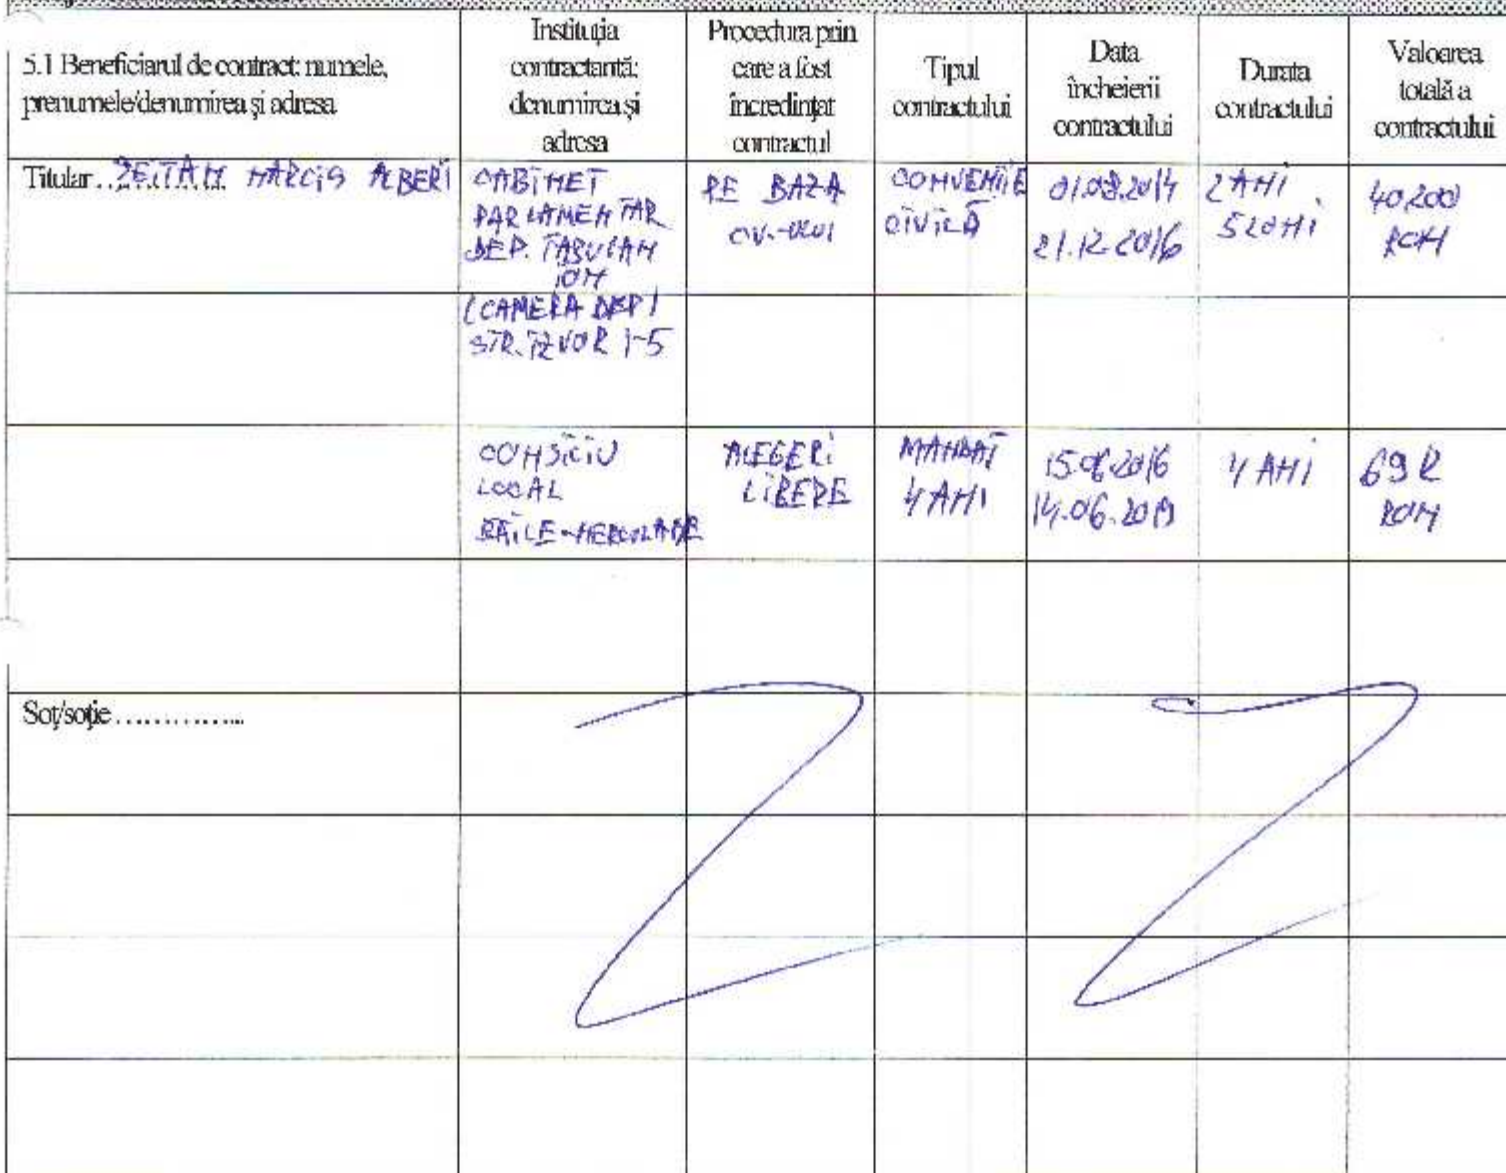 5.1 Beneficiarul de contract: numele,
prenumele/denumirea și adresa
Instituția
contractantă:
denumirea și
adresa
Procedura prin
care a fost
încredințat
contractul
Tipul
contractului
Data
încheierii
contractului
Durata
contractului
Valoarea
totală a
contractului
Titular ... NARCIS ALBERT
CABINET
PARLAMENTAR
DEP. TABUGAN
ION
(CAMERA DEP)
STR. IZVOR 1-5
PE BAZA
CV-ULUI
CONVENȚIE
CIVILĂ
01.08.2014
21.12.2016
2 ANI
5 LUNI
40.200
RON
CONSILIU
LOCAL
BĂILE-HERCULANE
ALEGERI
LIBERE
MANDAT
4 ANI
15.06.2016
14.06.2019
4 ANI
RON
Soț/soție ..............